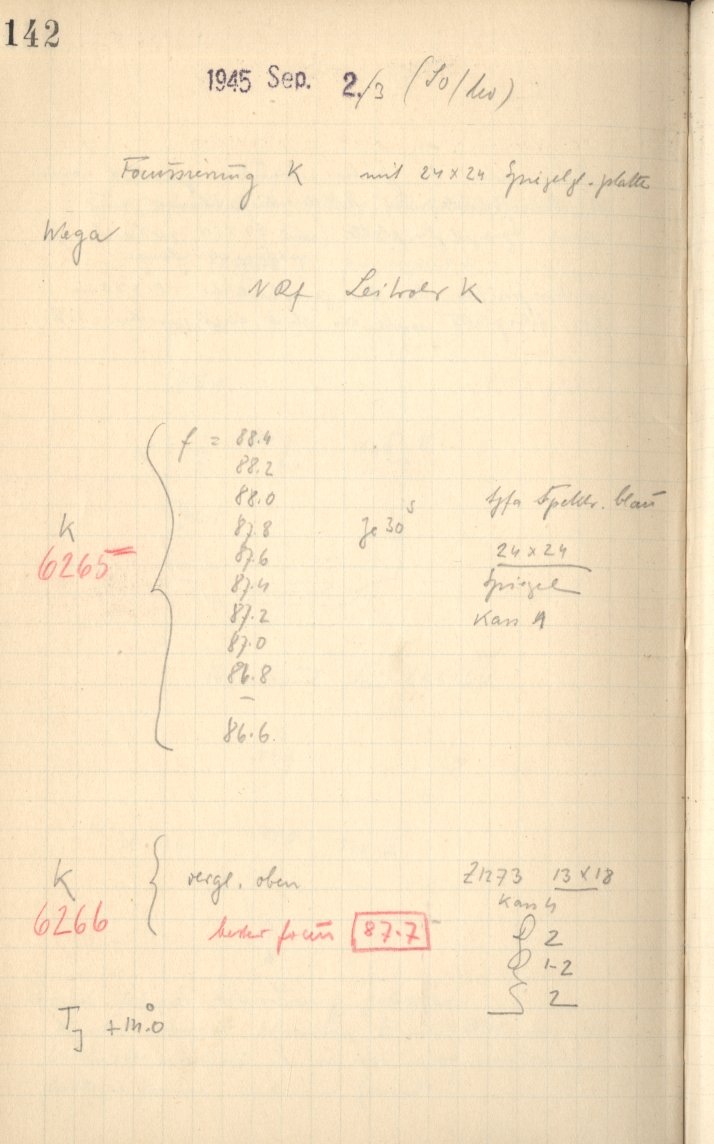 142
1945 Sep. 2./3 (So/Mo)
Focussierung K mit 24×24 Spiegelgl.platte
Wega
Leitrohr K
f = 88.4
88.2
88.0
K 87.8 Je 30s Agfa Spektr. blau
6265 87.6 24×24
87.4 Spiegel
87.2 Kass
87.0
86.8
–
86.6
K vergl. oben Z1273 13×18
Kass 4
6266 bester focus 87.7
2
1-2
2